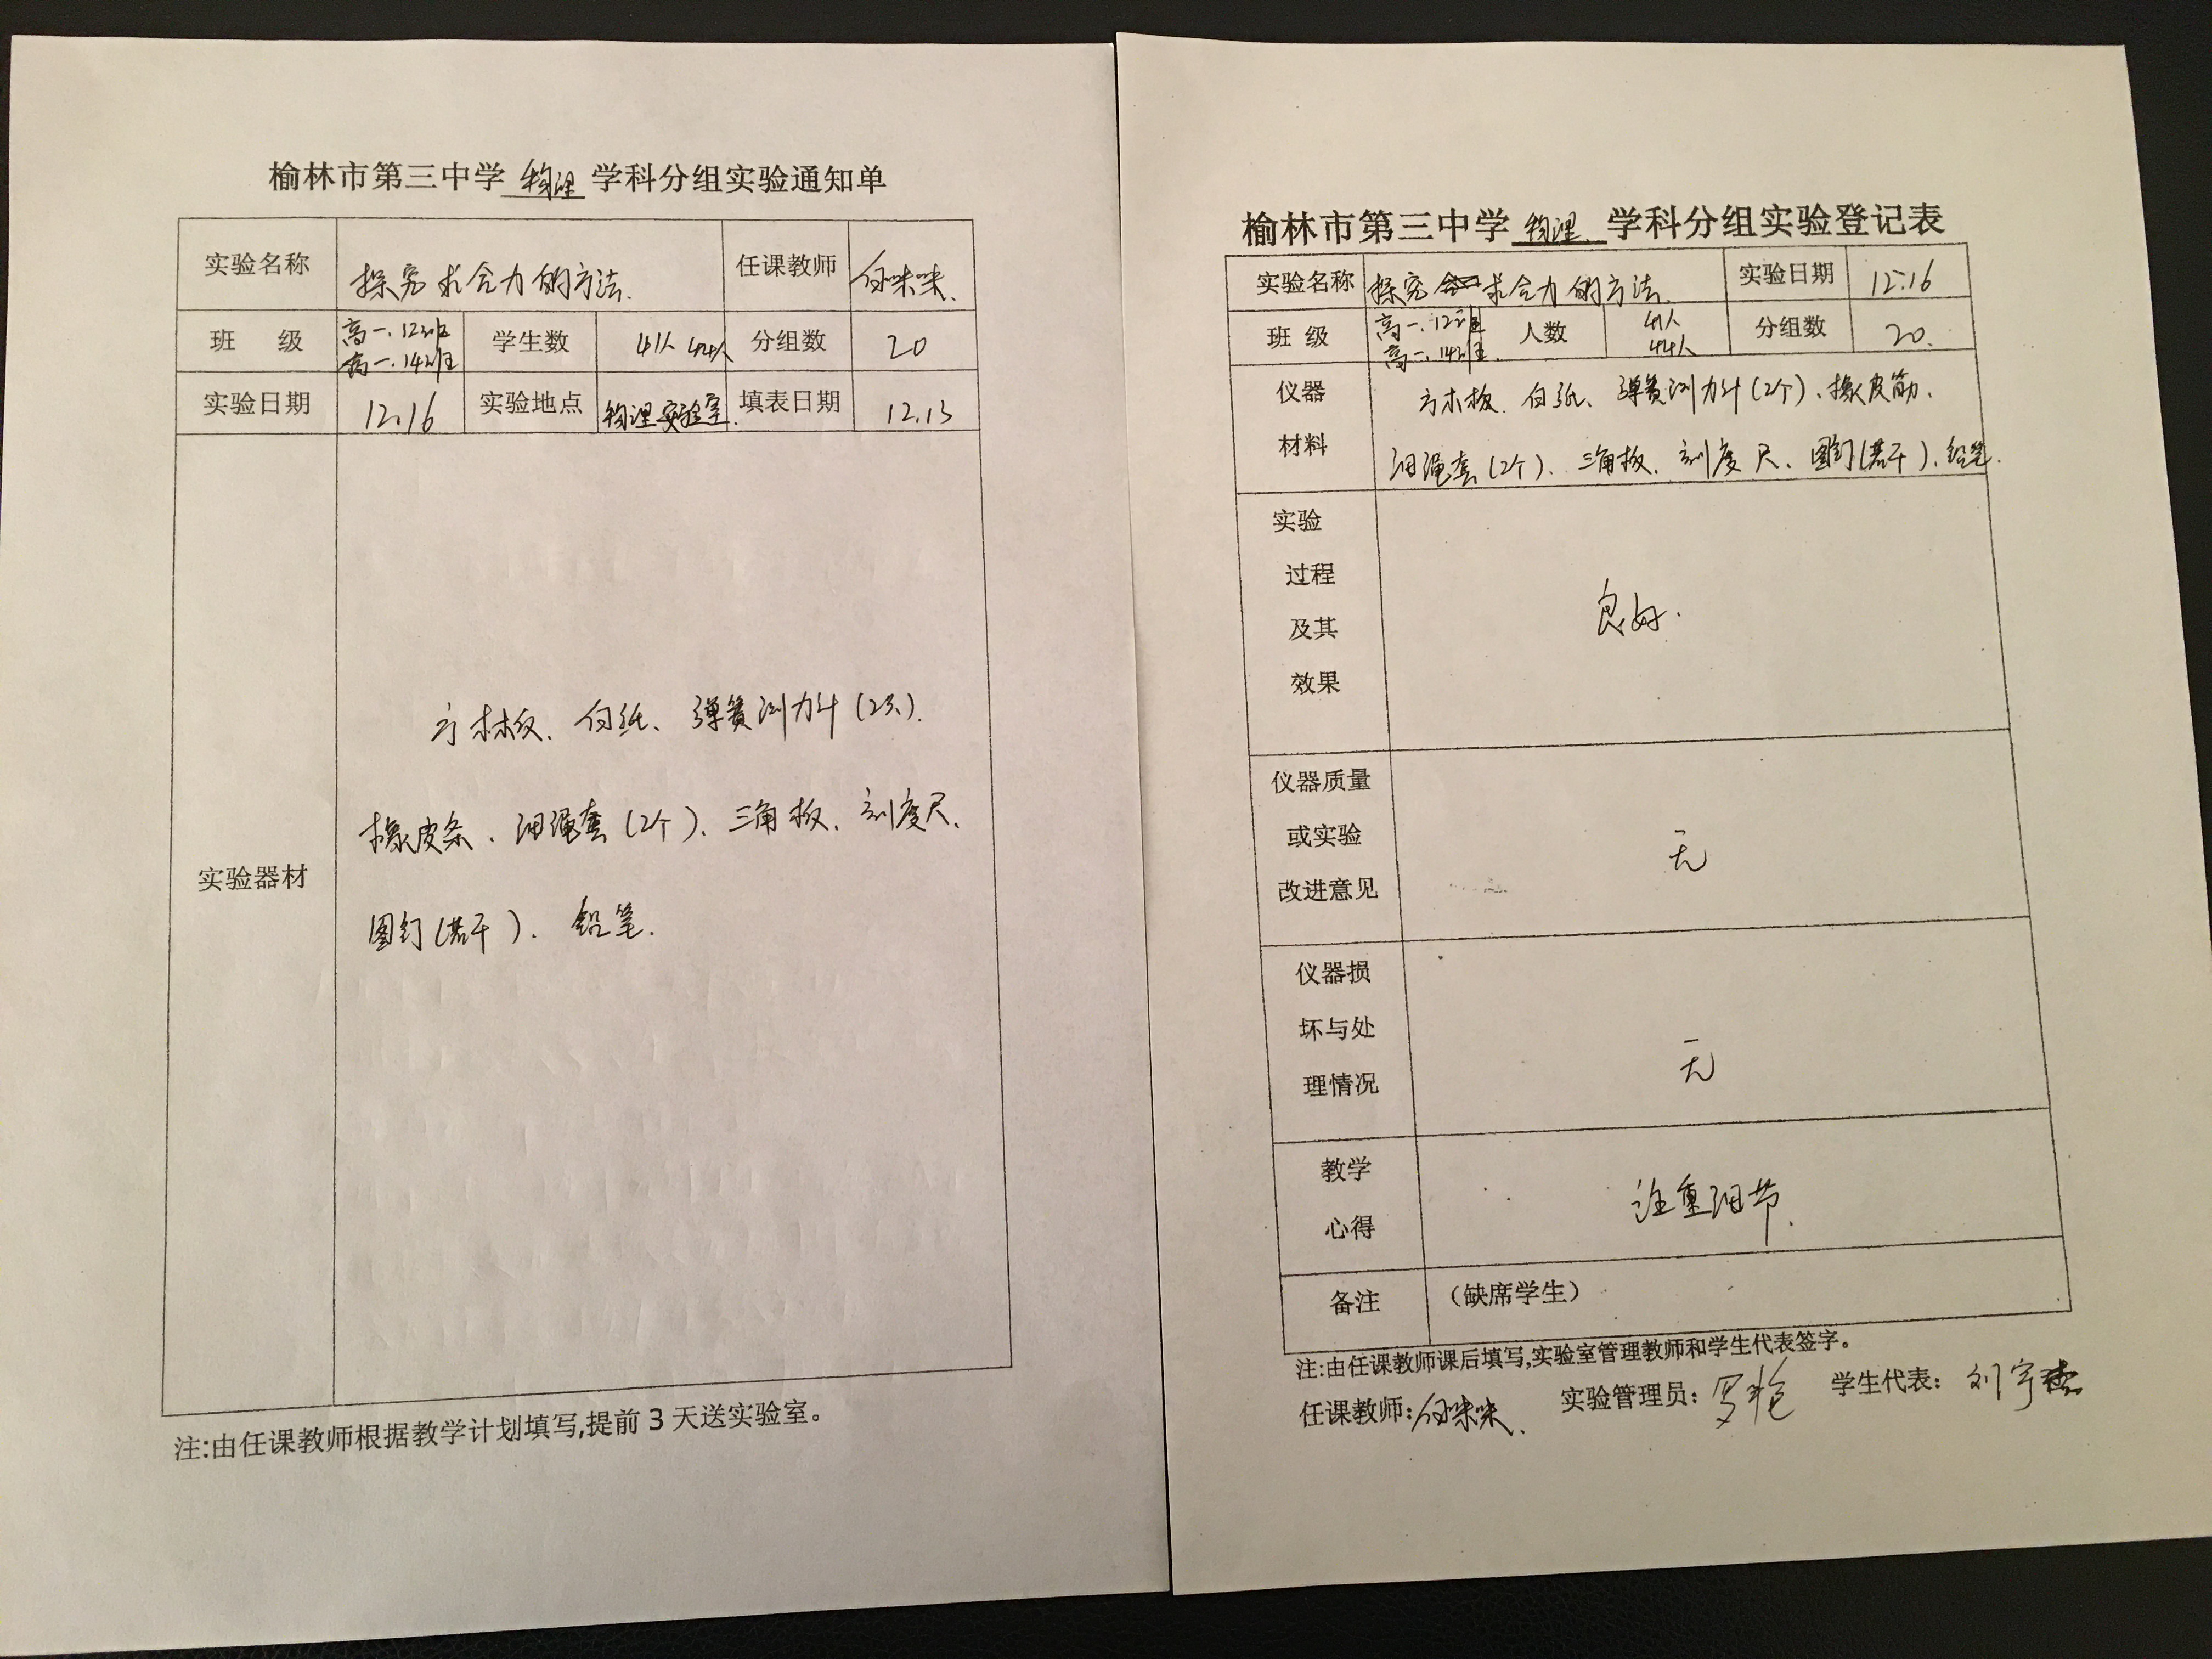 榆林市第三中学 物理 学科分组实验通知单
实验名称 探究求合力的方法. 任课教师
班 级 高一.12班 高一.14班 学生数 41人 44人 分组数 20
实验日期 12.16 实验地点 物理实验室. 填表日期 12.13
实验器材
方木板、白纸、弹簧测力计(2只).
橡皮条、细绳套(2个)、三角板、刻度尺、
图钉(若干)、铅笔.
注:由任课教师根据教学计划填写,提前3天送实验室。
榆林市第三中学 物理. 学科分组实验登记表
实验名称 探究 求合力的方法. 实验日期 12.16
班 级 高一.12班 高一.14班. 人数 41人 44人 分组数 20.
仪器
材料
方木板、白纸、弹簧测力计(2个)、橡皮筋、
细绳套(2个)、三角板、刻度尺、图钉(若干)、铅笔.
实验
过程
及其
效果
良好.
仪器质量
或实验
改进意见
无
仪器损
坏与处
理情况
无
教学
心得
注重细节.
备注 (缺席学生)
注:由任课教师课后填写,实验室管理教师和学生代表签字。
任课教师: 实验管理员: 学生代表: 刘宇